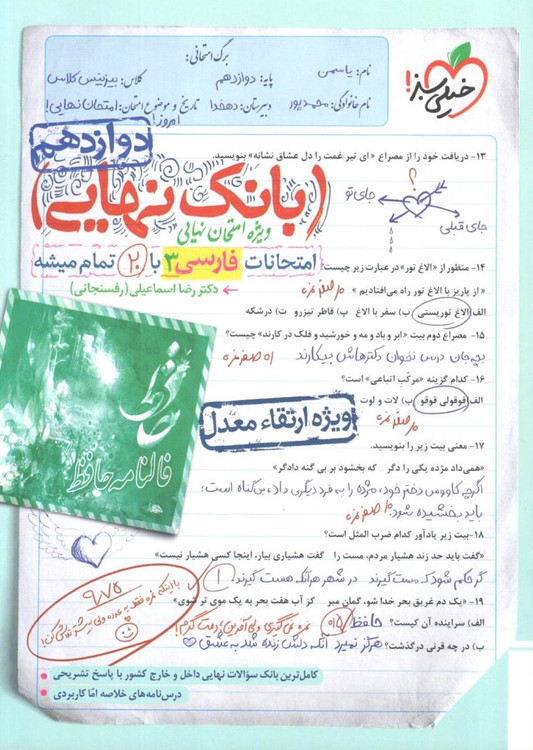 برگ امتحانی:
نام: یاسمن
پایه: دوازدهم
کلاس: بیزینس کلاس
نام خانوادگی: محمدپور
دبیرستان: دهخدا
تاریخ و موضوع امتحان: امتحان نهایی!
امروز!
خیلی سبز!
دوازدهم
۱۳- دریافت خود را از مصراع «ای تیر غمت را دل عشاق نشانه» بنویسید.
؟
جای تو
جای قبلی
(بانک نهایی)
ویژه امتحان نهایی
امتحانات فارسی ۳ با ۲۰ تمام میشه
دکتر رضا اسماعیلی (رفسنجانی)
۱۴- منظور از «الاغ تور» در عبارت زیر چیست؟
«از پاریز با الاغ تور راه می‌افتادیم» صفر نمره
الف) الاغ توریستی ب) سفر با الاغ پ) قاطر تیزرو ت) درشکه
۱۵- مصراع دوم بیت «ابر و باد و مه و خورشید و فلک در کارند» چیست؟
بچه‌جان درس نخوان دکترهاش بیکارند صفر نمره
۱۶- کدام گزینه «مرکب اتباعی» است؟
الف) قوقولی قوقو ب) لات و لوت
صفر نمره
ویژه ارتقاء معدل
۱۷- معنی بیت زیر را بنویسید.
«همی‌داد مژده یکی را دگر که بخشود بر بی گنه دادگر»
اگرچه کاووس دختر خود، مژده را به فرد دیگری داد، بی‌گناه است؛
باید بخشیده شود. صفر نمره
۱۸- بیت زیر یادآور کدام ضرب المثل است؟
«گفت باید حد زند هشیار مردم، مست را گفت هشیاری بیار، اینجا کسی هشیار نیست»
گر حکم شود که مست گیرند در شهر هر آنکه هست گیرند. ۱
۱۹- «یک دم غریق بحر خدا شو، گمان مبر کز آب هفت بحر به یک موی تر شوی»
الف) سراینده آن کیست؟ حافظ
ب) در چه قرنی درگذشت؟ هرگز نمیرد آنکه دلش زنده شد به عشق
فالنامه حافظ
کامل‌ترین بانک سؤالات نهایی داخل و خارج کشور با پاسخ تشریحی
درس‌نامه‌های خلاصه امّا کاربردی